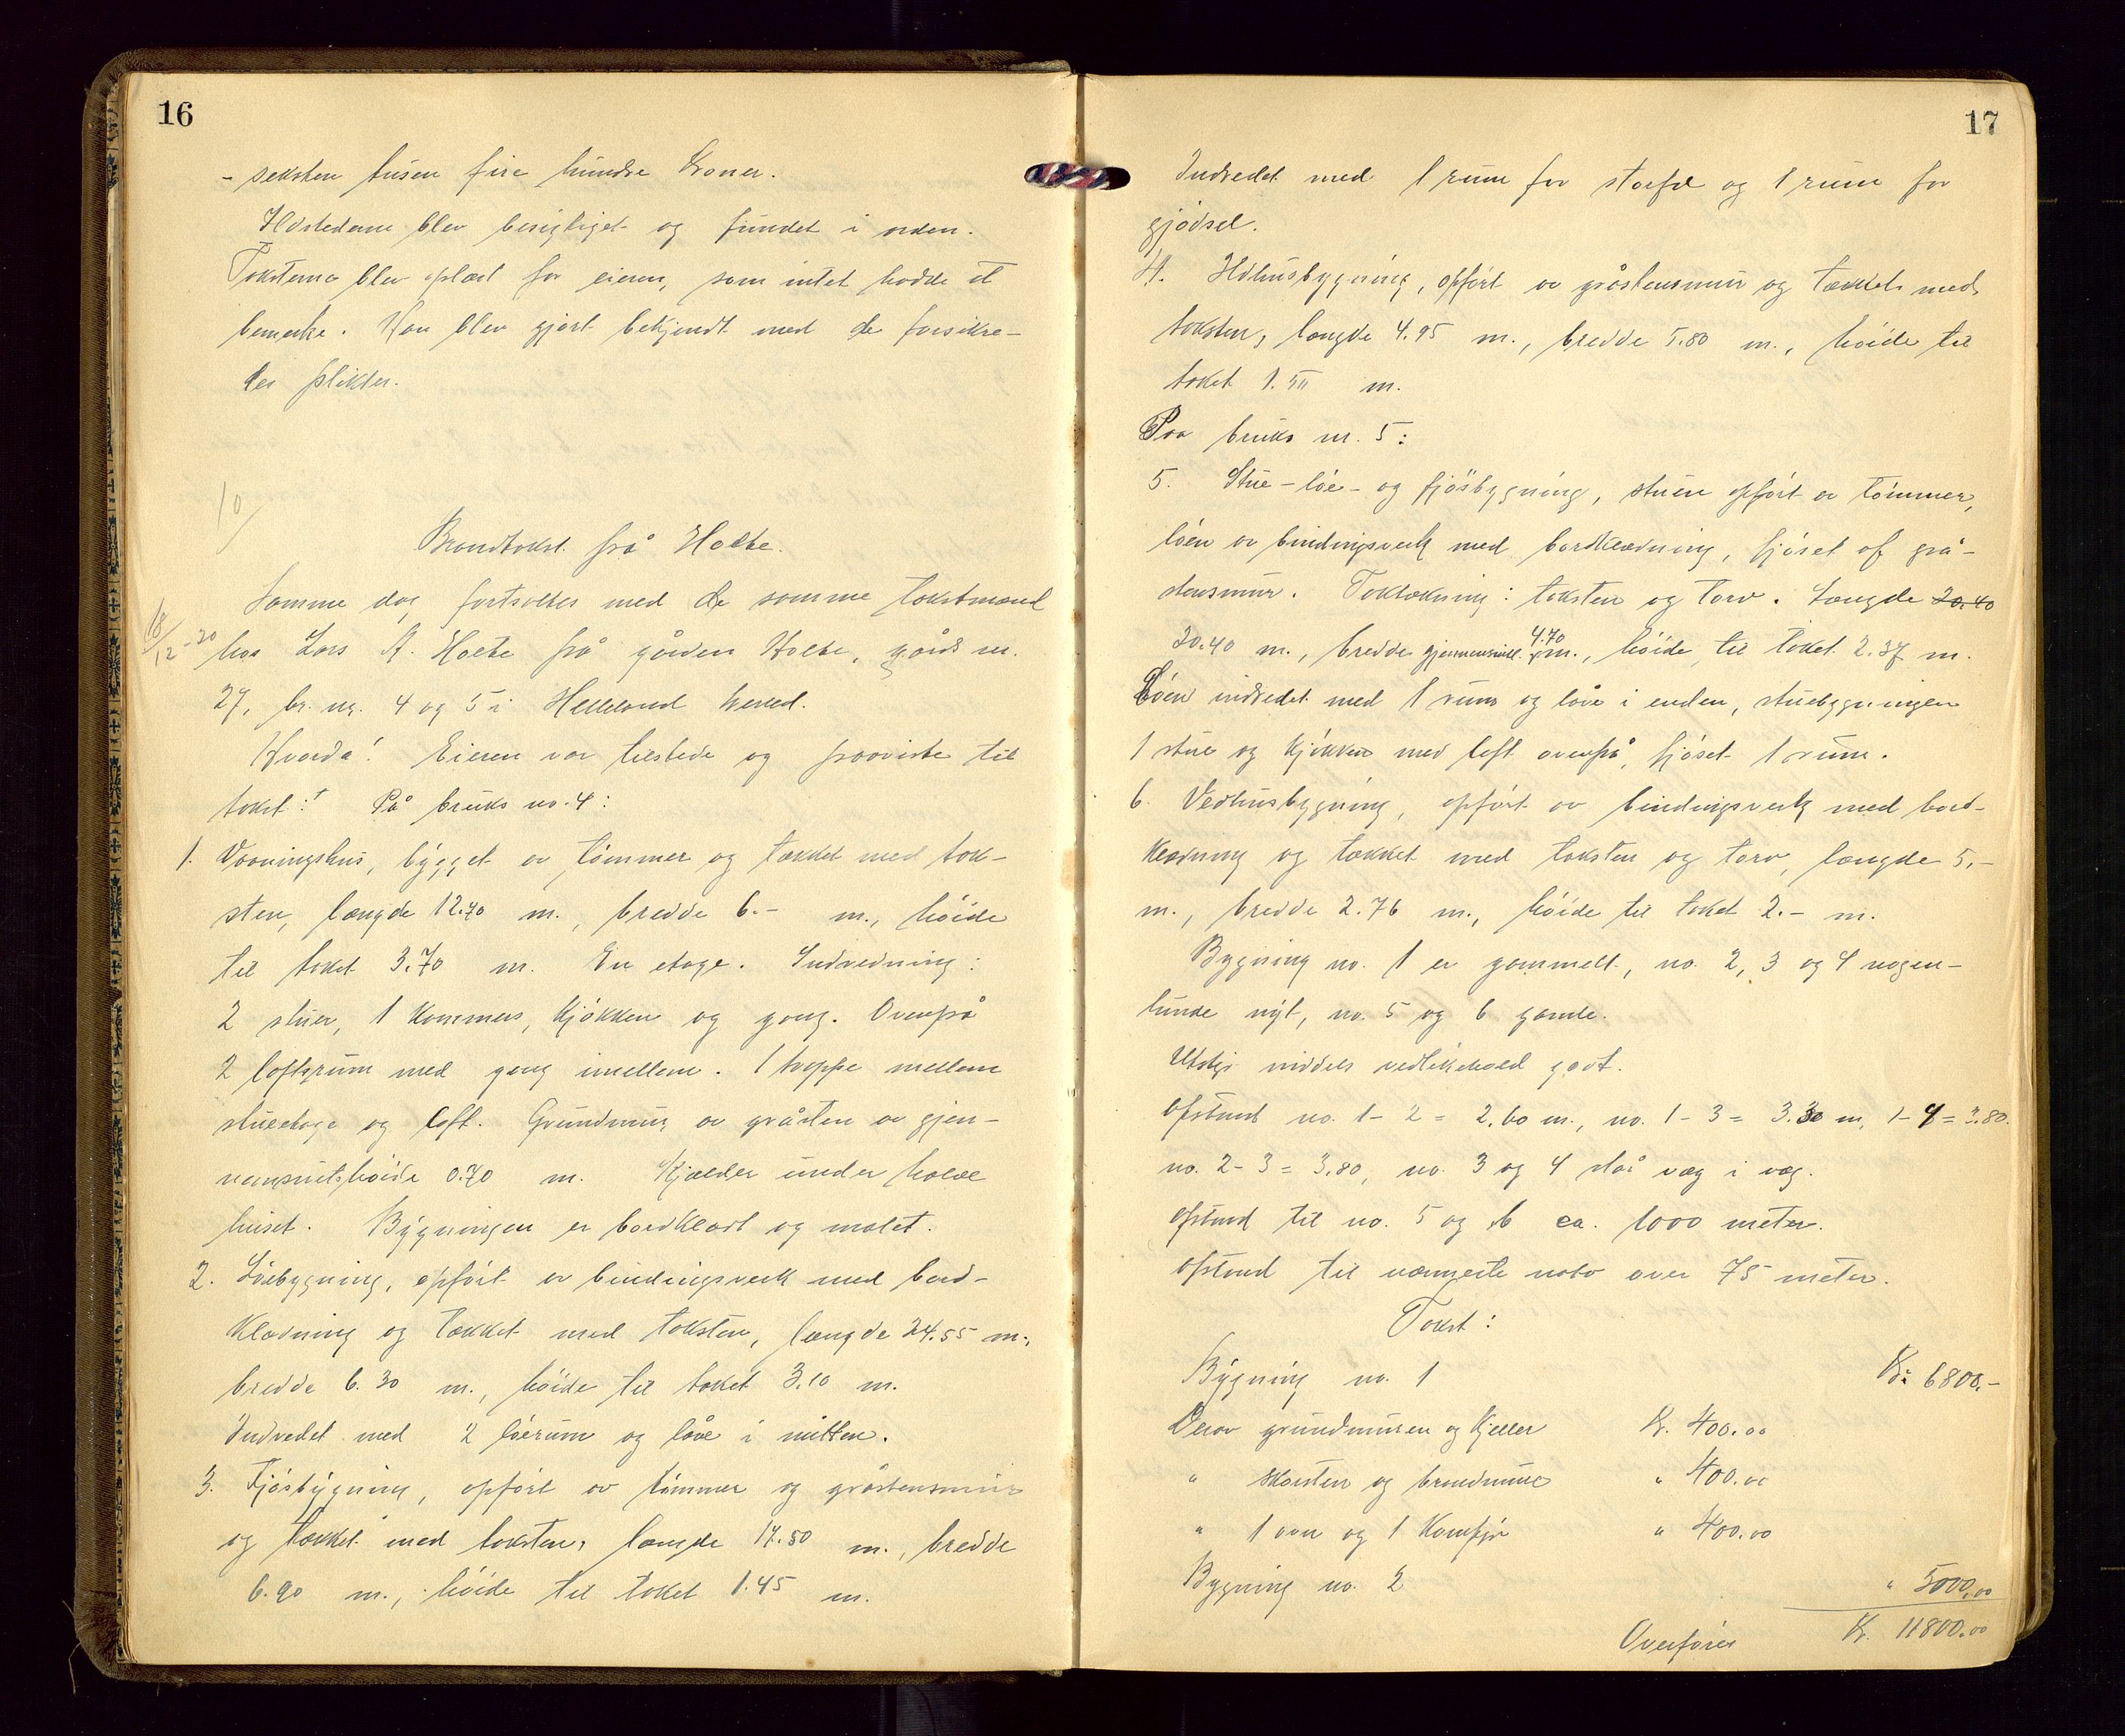 16
- seksten tusen fire hundre kroner.
Ildstederne blev besigtiget og fundet i orden.
Taksterne blev oplæst for eieren, som intet hadde at
bemerke. Han blev gjort bekjendt med de forsikre-
des plikter.
10
Brandtakst på Holte.
Samme dag fortsattes med de samme takstmænd
18/12-20
hos Lars A. Holte på gården Holte, gårds nr.
27, br. nr. 4 og 5 i Helleland herred.
Hvorda! Eieren var tilstede og paaviste til
takst: På bruks no. 4:
1. Vaaningshus, bygget av tømmer og tækket med tak-
sten, længde 12.70 m., bredde 6.- m., høide
til taket 3.70 m. En etage. Indredning:
2 stuer, 1 kammers, kjøkken og gang. Ovenpå
2 loftsrum med gang imellem. 1 trappe mellem
stueetage og loft. Grundmur av gråsten av gjen-
nemsnitshøide 0.70 m. Kjælder under halve
huset. Bygningen er bordklædt og malet.
2. Løebygning, opført av bindingsverk med bord-
klædning og tækket med taksten, længde 24.55 m.,
bredde 6.30 m., høide til taket 3.10 m.
Indredet med 2 løerum og låve i midten.
3. Fjøsbygning, opført av tømmer og gråstensmur
og tækket med taksten, længde 14.50 m., bredde
6.90 m., høide til taket 1.45 m.
17
Indredet med 1 rum for storfæ og 1 rum for
gjødsel.
4. Ildhusbygning, opført av gråstensmur og tækket med
taksten, længde 4.95 m., bredde 5.80 m., høide til
taket 1.50 m.
Paa bruks nr. 5:
5. Stue-løe- og fjøsbygning, stuen opført av tømmer,
løen av bindingsverk med bordklædning, fjøset af grå-
stensmur. Taktækning: taksten og torv. Længde 20.40
20.40 m., bredde gjennemsnitl. 4.70 m., høide til taket 2.37 m.
Løen indredet med 1 rum og låve i enden, stuebygningen
1 stue og kjøkken med loft ovenpå, fjøset 1 rum.
6. Vedhusbygning, opført av bindingsverk med bord-
klædning og tækket med taksten og torv, længde 5.-
m., bredde 2.76 m., høide til taket 2.- m.
Bygning no. 1 er gammelt, no. 2, 3 og 4 nogen-
lunde nyt, no. 5 og 6 gamle.
Utstyr middels vedlikehold godt.
Afstand no. 1-2 = 2.60 m., no. 1-3 = 3.30 m, 1-4 = 3.80.
no. 2-3 = 3.80, no. 3 og 4 står væg i væg.
Afstand til no. 5 og 6 ca. 1000 meter.
Afstand til nærmeste nabo over 75 meter.
Takst:
Bygning no. 1 Kr. 6800.-
Derav grundmuren og kjeller Kr. 400.00
" skorsten og brandmure " 400.00
" 1 ovn og 1 komfyr " 400.00
Bygning no. 2 " 5000.00
Overføres Kr. 11800.00